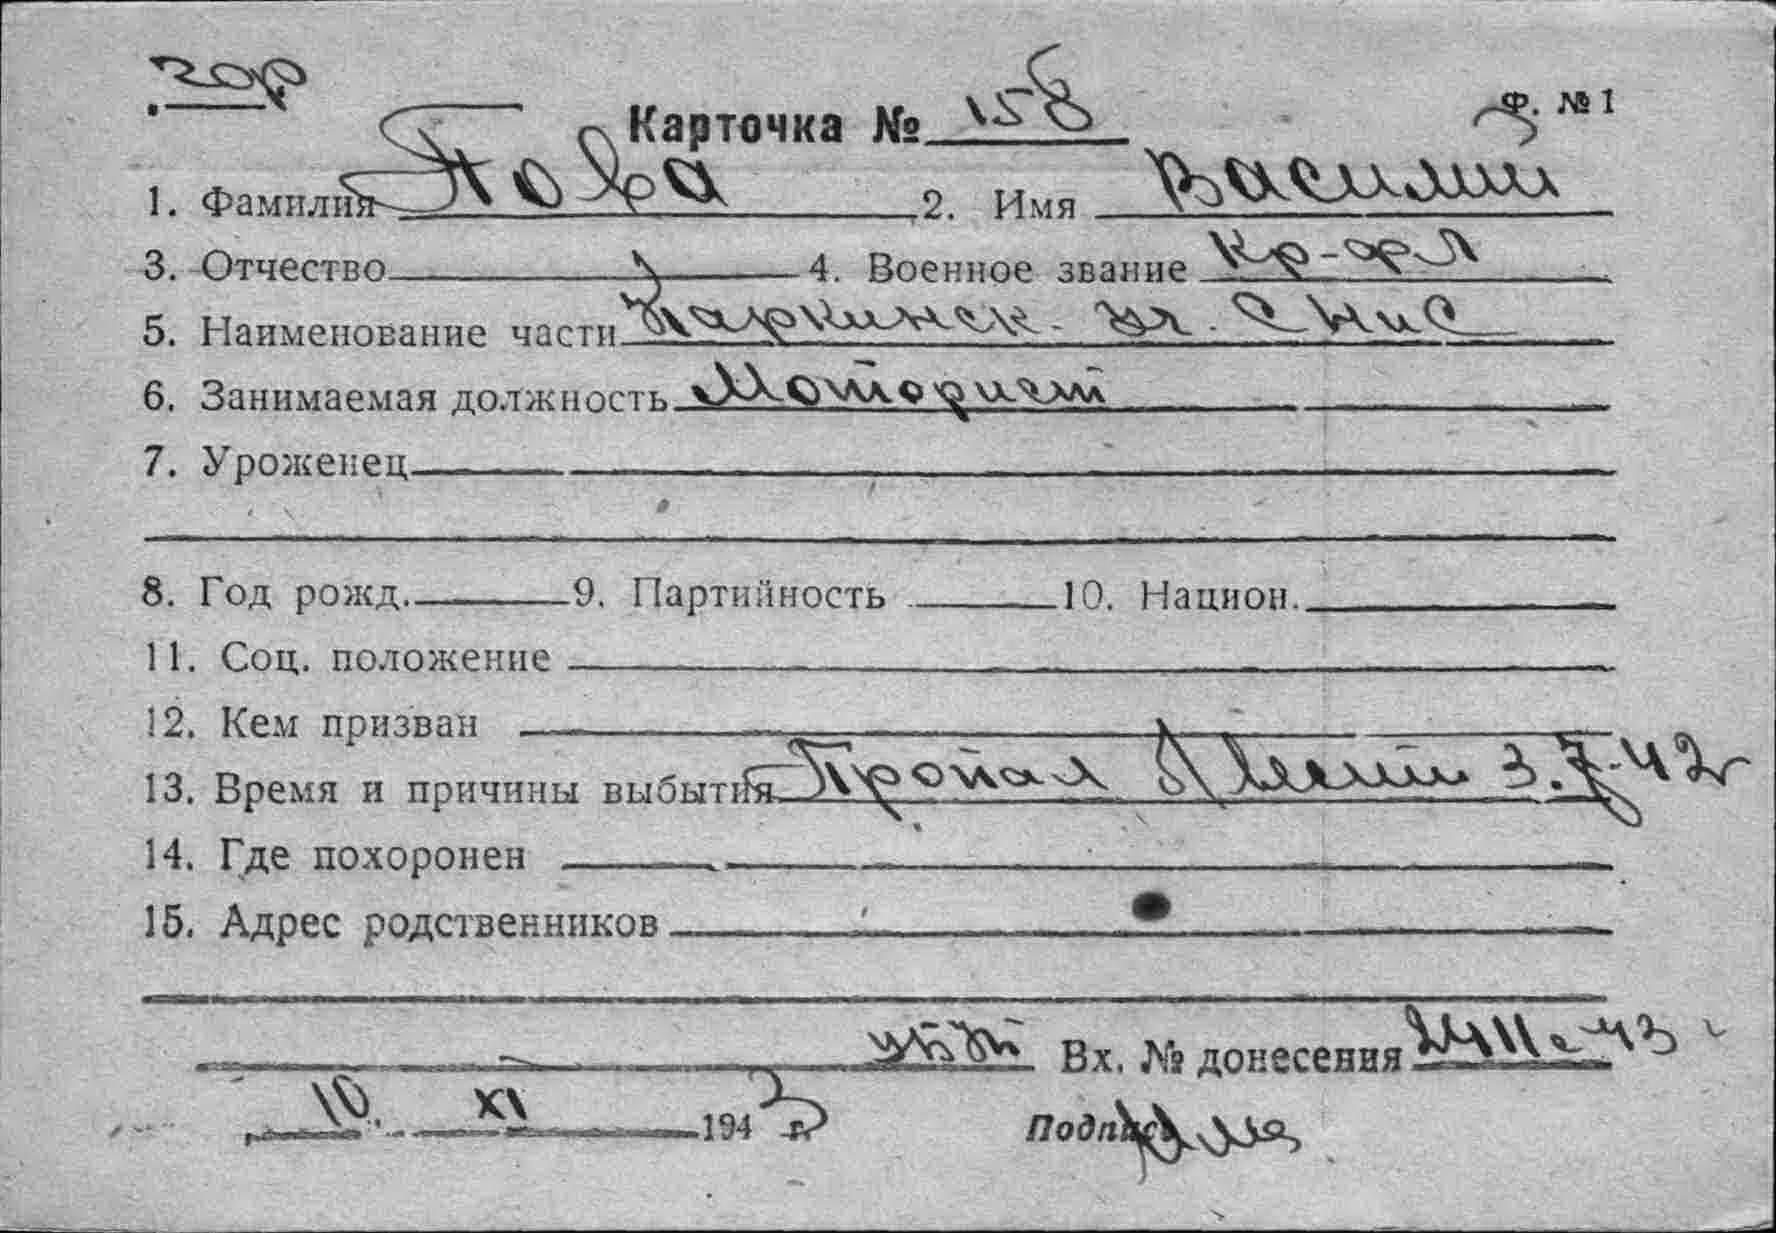 Карточка № 158 Ф. №1
1. Фамилия Пова 2. Имя Василий
3. Отчество 4. Военное звание Кр-фл
5. Наименование части СНиС
6. Занимаемая должность Моторист
7. Уроженец
8. Год рожд. 9. Партийность 10. Национ.
11. Соц. положение
12. Кем призван
13. Время и причины выбытия Пропал 3.7.42г
14. Где похоронен
15. Адрес родственников
Вх. № донесения
10. XI 1943 г.
Подпись